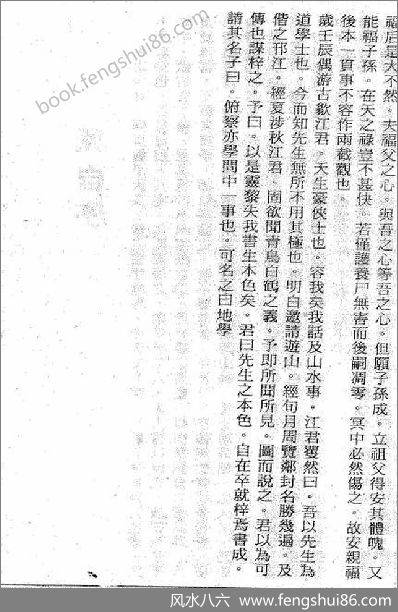 福后是大不然。夫福父之心。與吾之心等吾之心。但願子孫成。立祖父得安其體魄。又
能福子孫。在天之祿豈不甚快。若僅護養尸無害而後嗣凋零。冥中必然傷之。故安親福
後本一貫事不容作兩截觀也。
歲壬辰偶游古歙江君。天生豪俠士也。容我矣我話及山水事。江君蹙然曰。吾以先生為
道學士也。今而知先生無所不用其極也。明日邀請遊山。經旬月周覽鄰封名勝幾遍。及
偕之邗江。經夏涉秋江君。固欲聞青烏白鶴之義。予即所聞所見。圖而說之。君以為可
傳也謀梓之。予曰。以是靈黎失我書生本色矣。君曰先生之本色。自在卒就梓焉書成。
請其名予曰。俯察亦學問中一事也。可名之曰地學
book.fengshui86.com
风水八六 | www.fengshui86.com